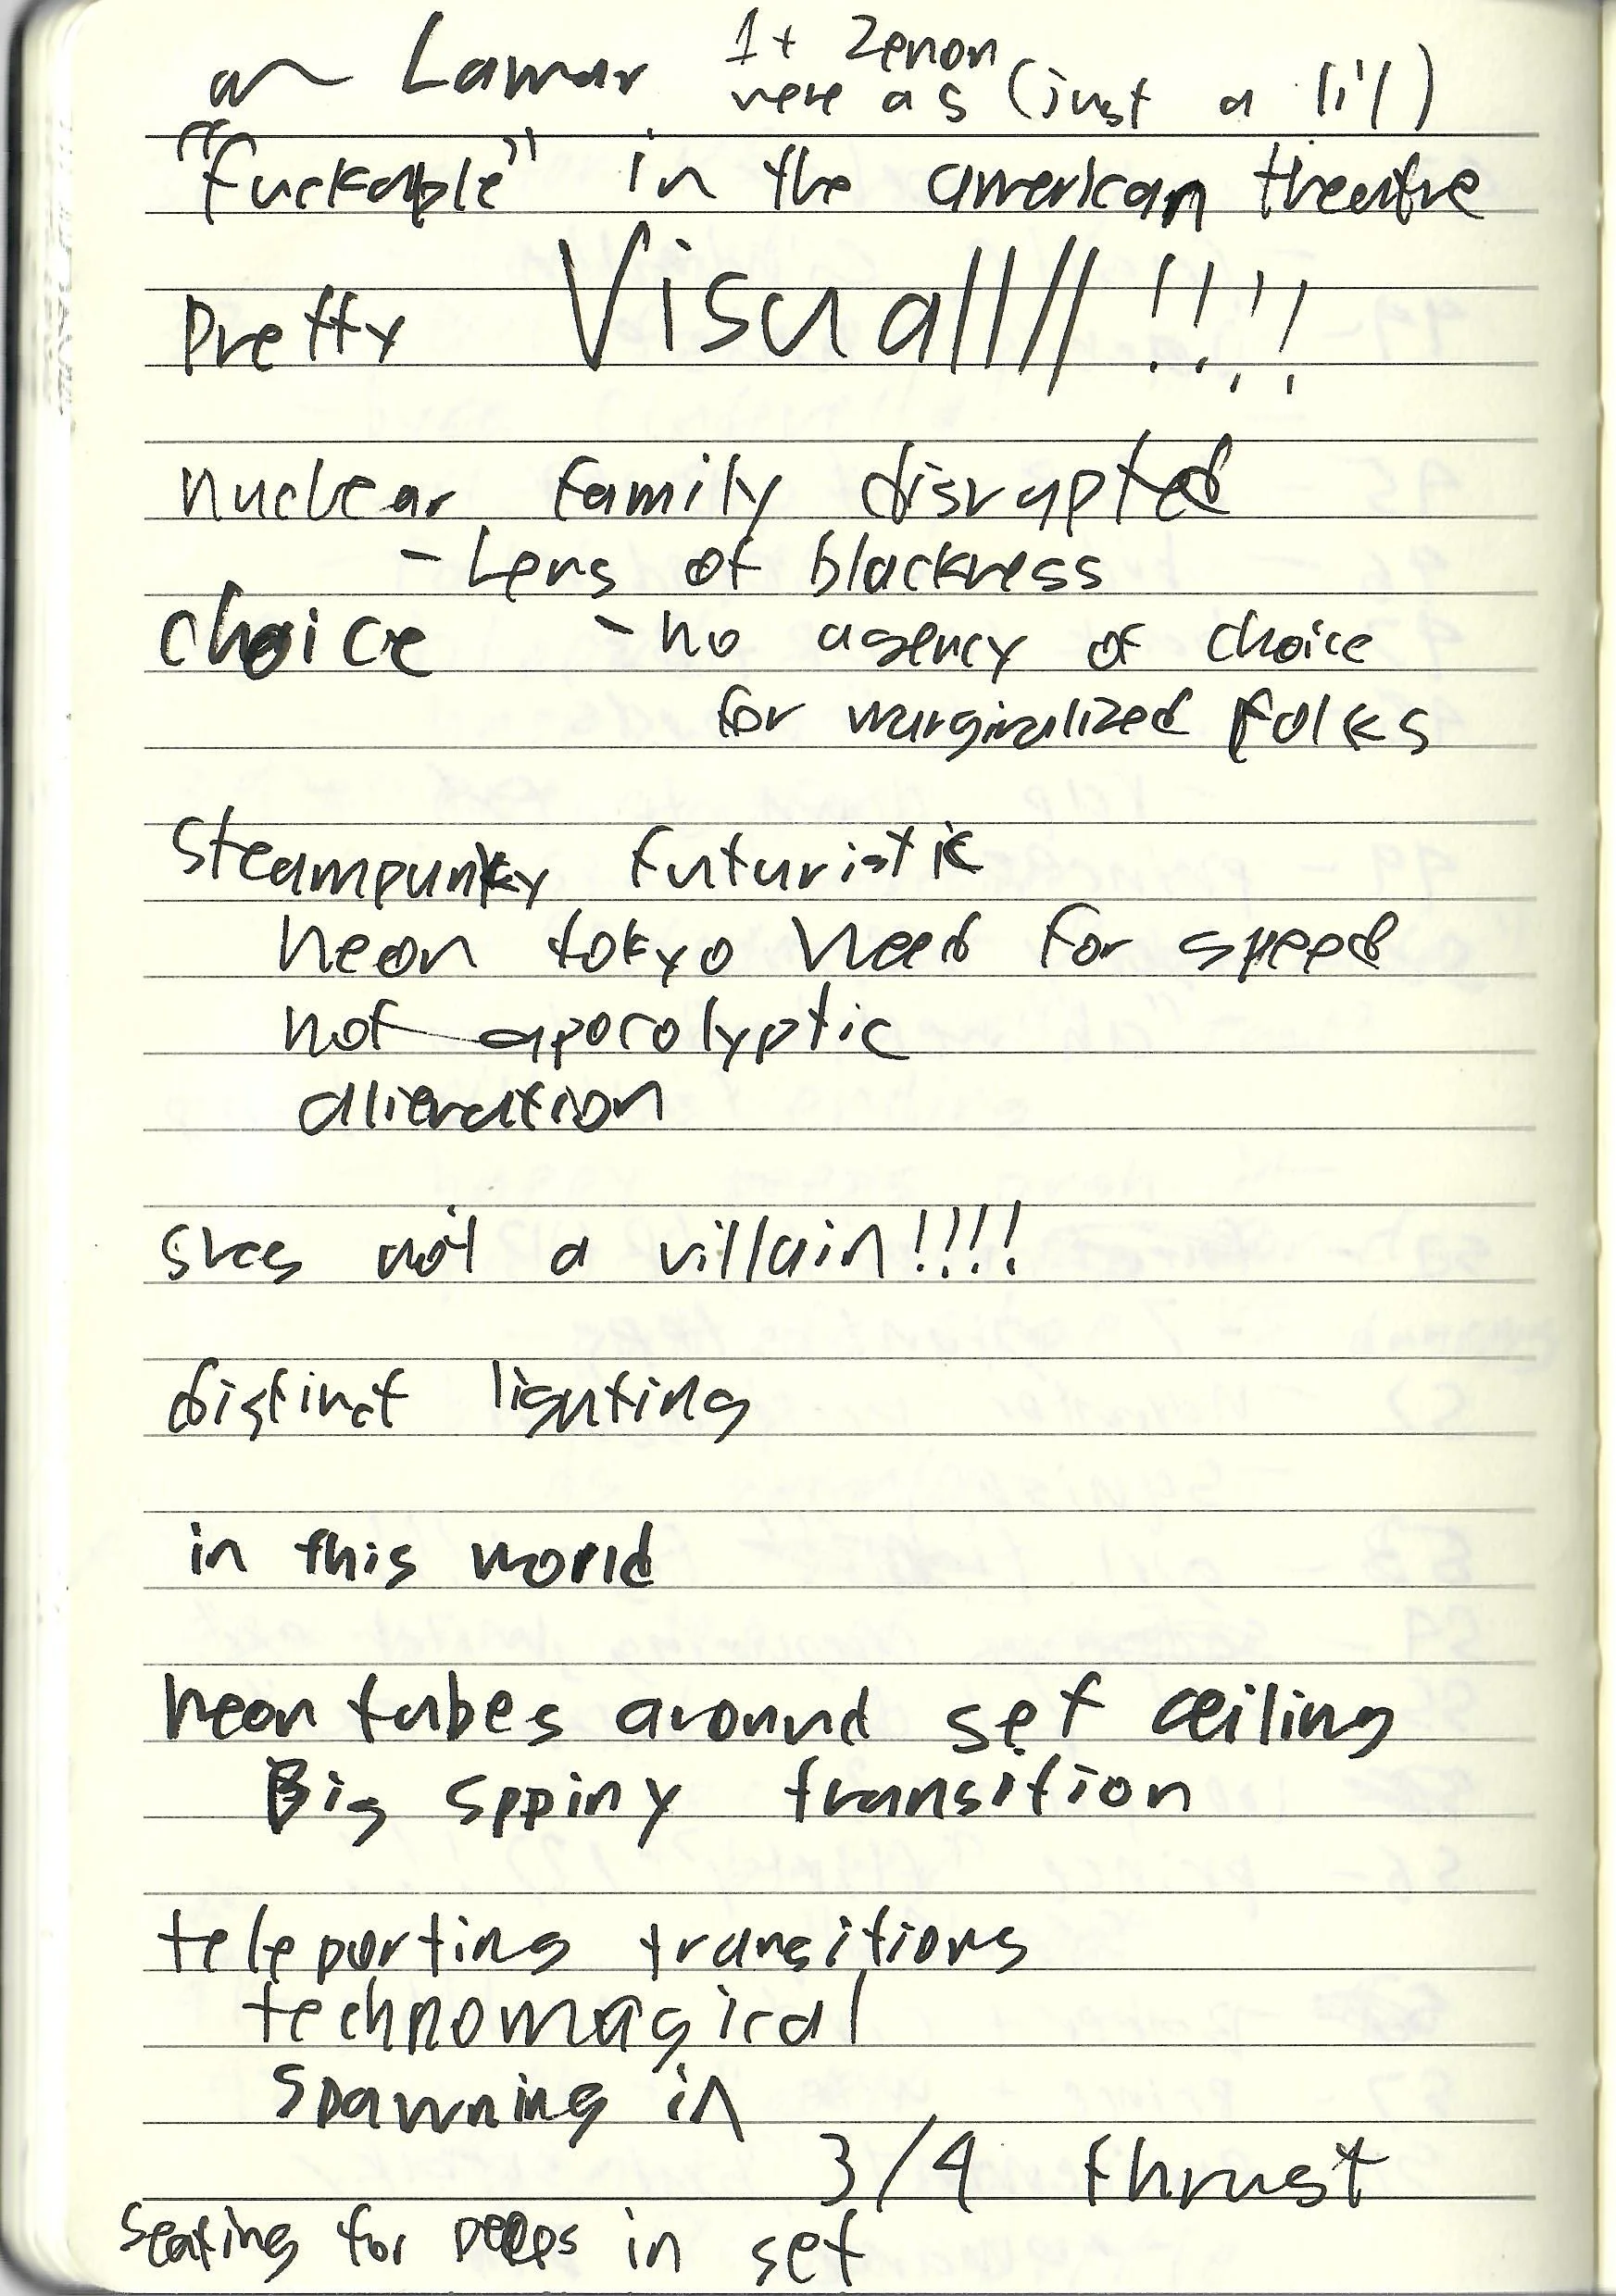 Lamar 1+ Zenon
were as (just a li'l)
"fuckable" in the american theatre
Pretty Visuallll!!!!
nuclear family disrupted
- Lens of blackness
choice - no agency of choice
for marginalized folks
Steampunky futuristic
neon tokyo need for speed
not apocolyptic
alienation
shes not a villain!!!!
distinct lighting
in this world
neon tubes around set ceiling
Big sppiny transition
teleporting transitions
technomagical
spawning in
3/4 thrust
Seating for peeps in set